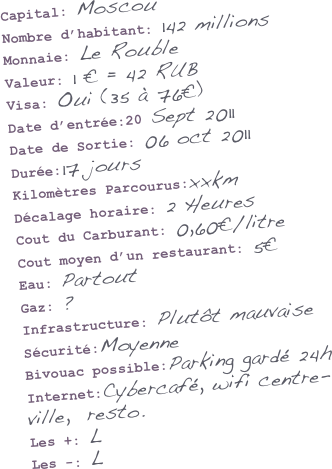 Capital: Moscou
Nombre d'habitant: 142 millions
Monnaie: Le Rouble
Valeur: 1 € = 42 RUB
Visa: Oui (35 à 76€)
Date d'entrée:20 Sept 2011
Date de Sortie: 06 oct 2011
Durée:17 jours
Kilomètres Parcourus:xxkm
Décalage horaire: 2 Heures
Cout du Carburant: 0,60€/litre
Cout moyen d'un restaurant: 5€
Eau: Partout
Gaz: ?
Infrastructure: Plutôt mauvaise
Sécurité:Moyenne
Bivouac possible:Parking gardé 24h
Internet:Cybercafé, wifi centre-
ville, resto.
Les +: L
Les -: L